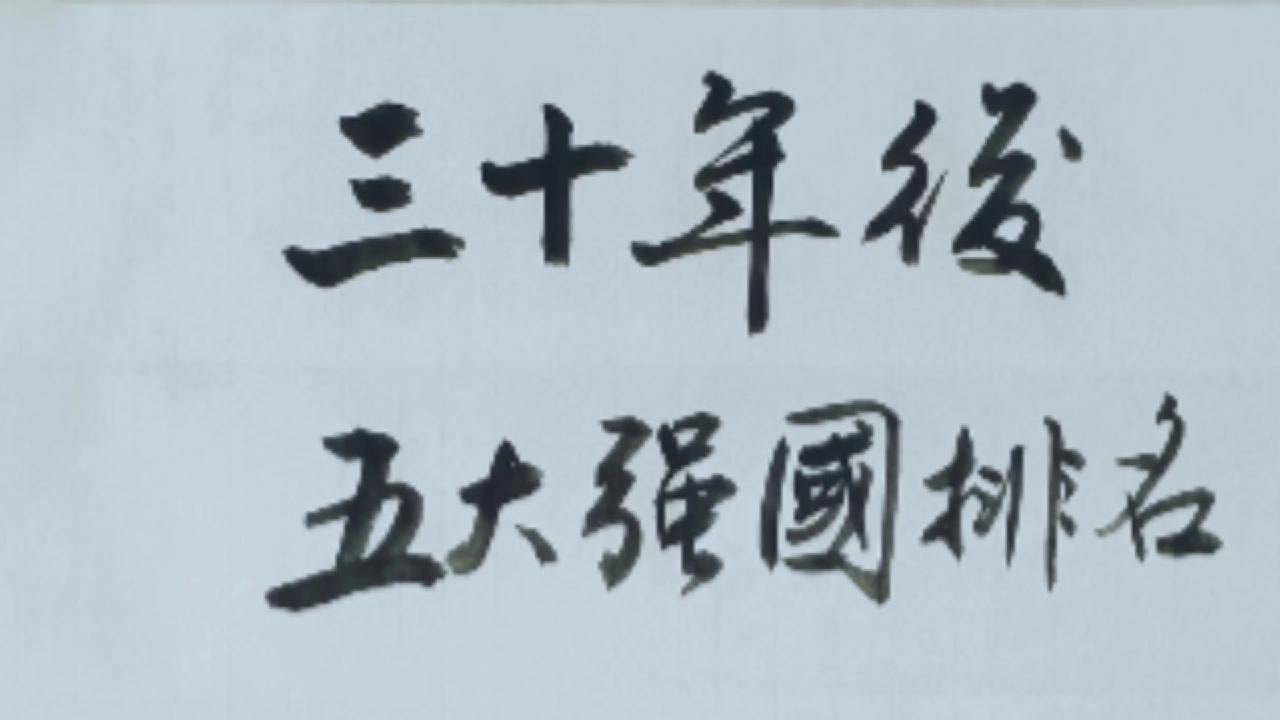 三十年後
五大强國排名